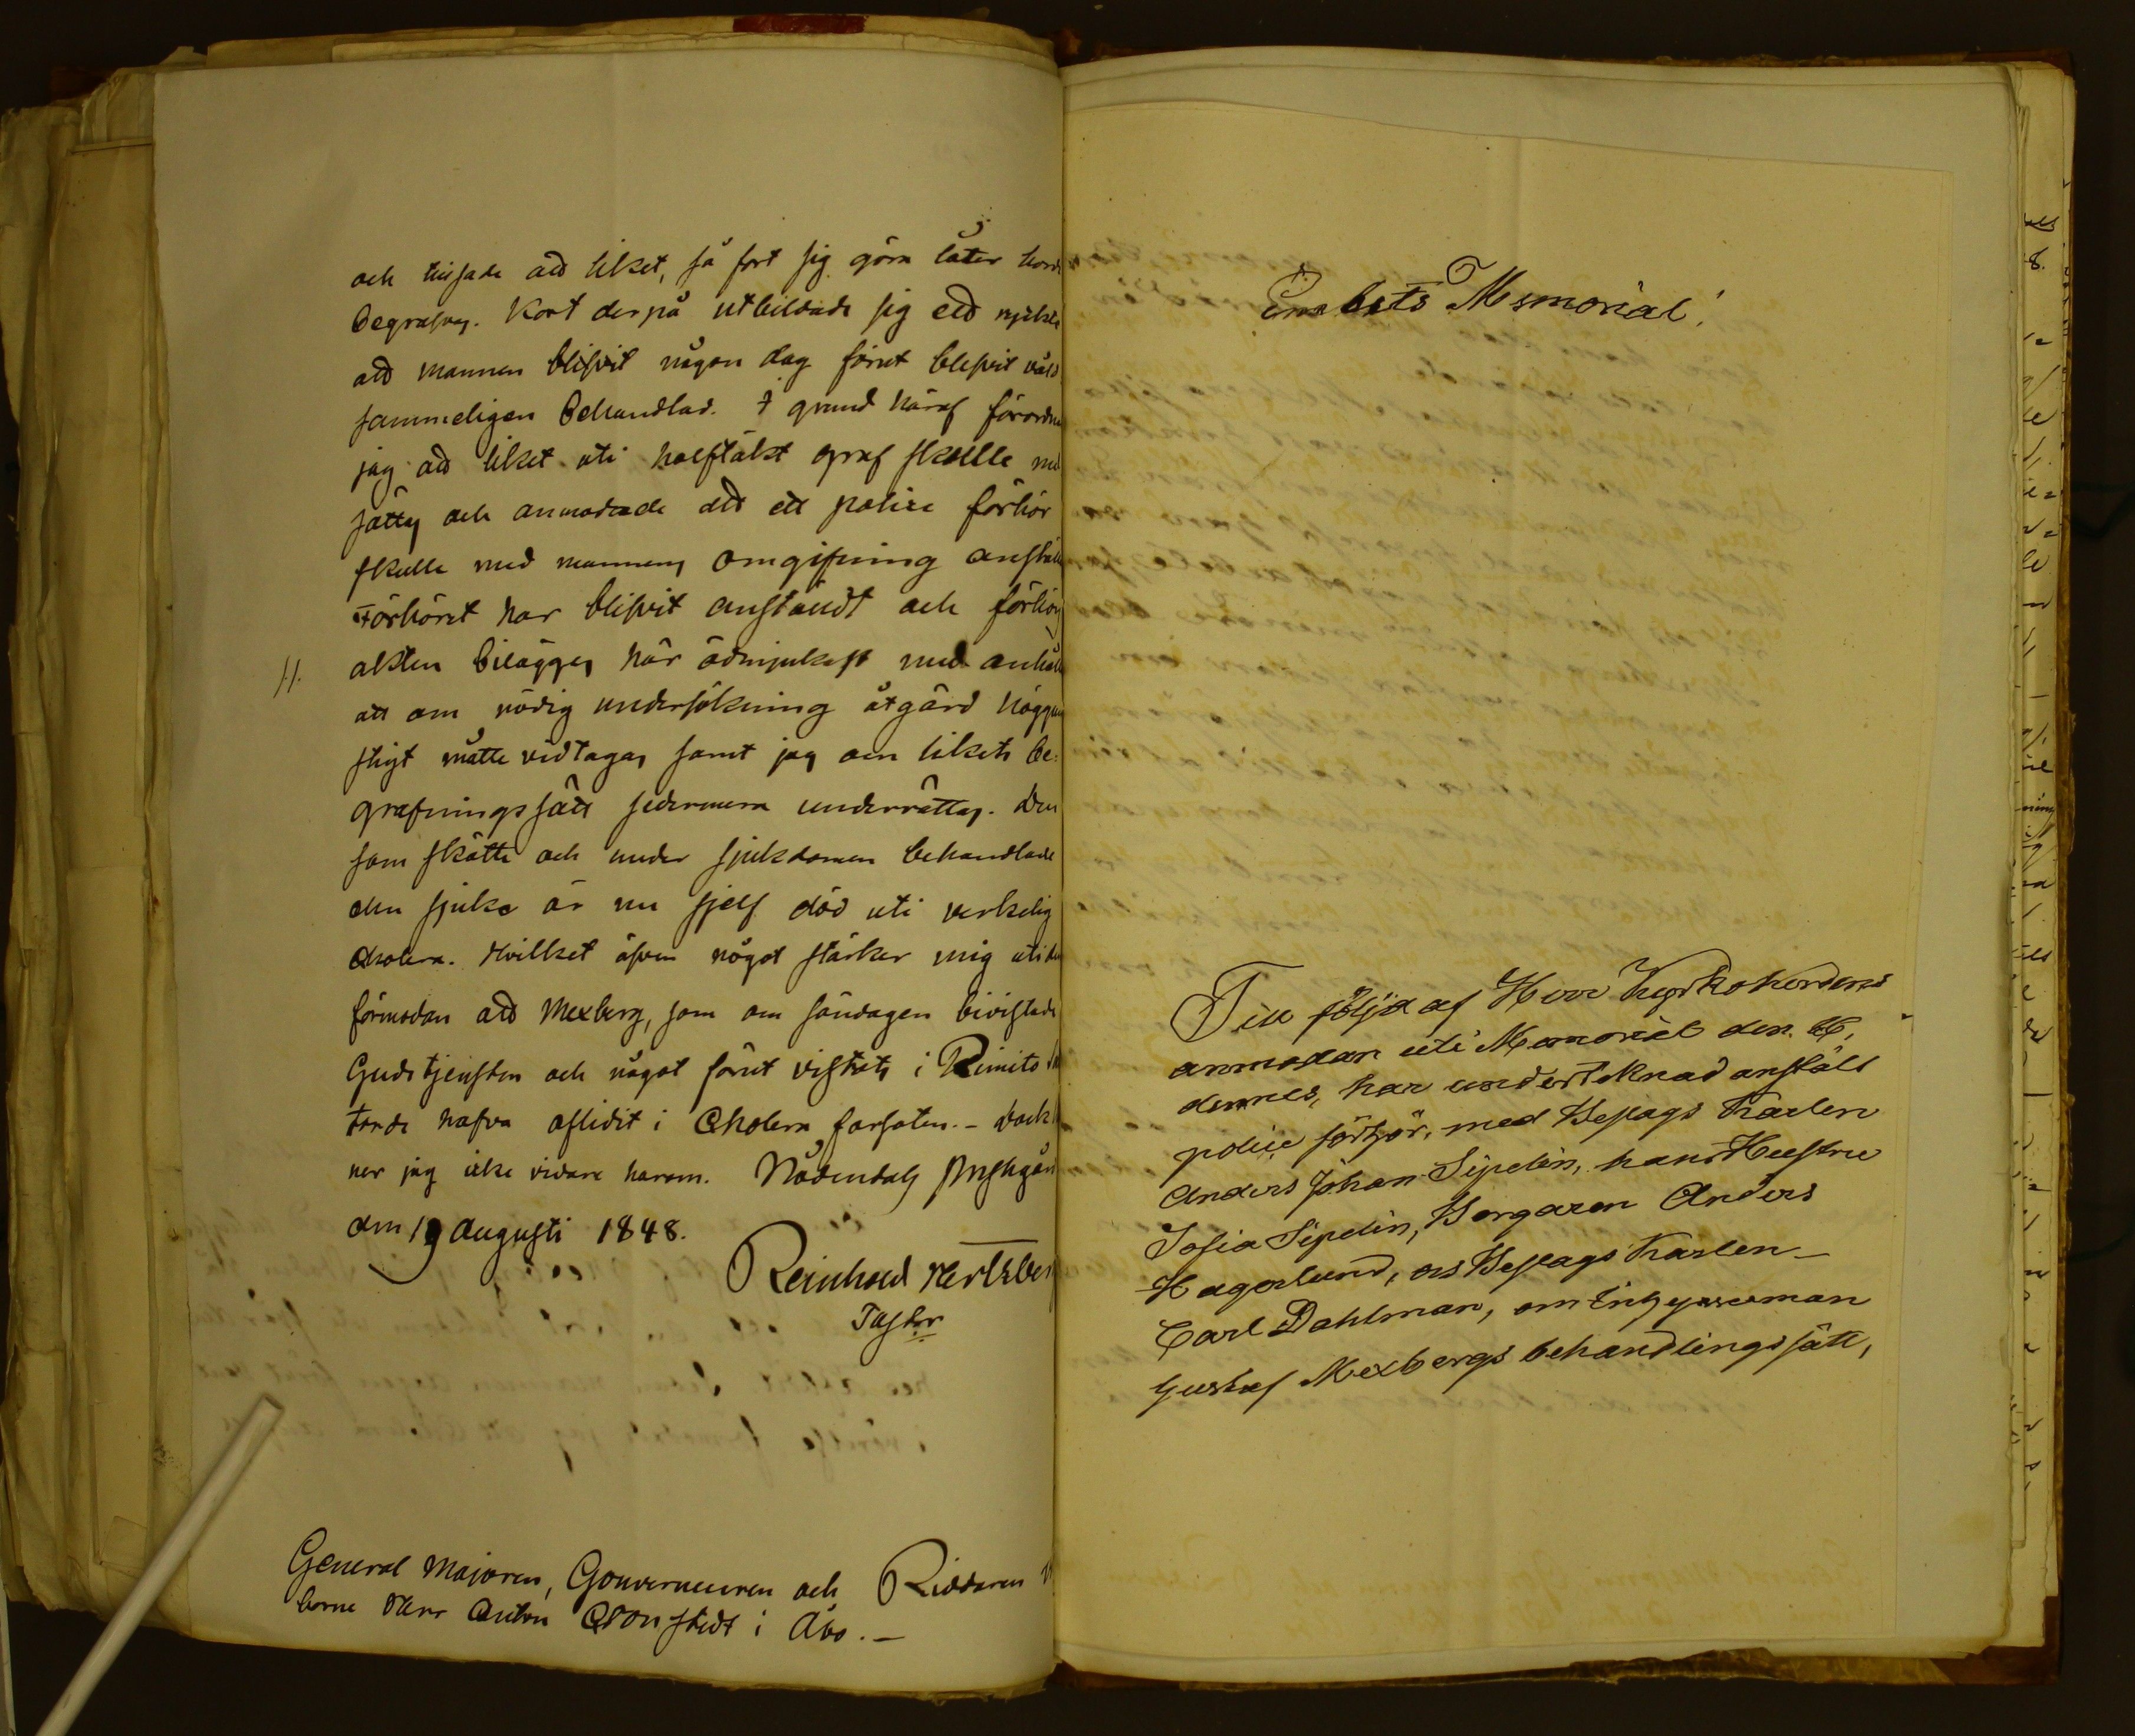 och tillsade att liket, så fort sig göra låter borde
begrafvas. Kort derpå utbildade sig ett rykte
att mannen blifvit någon dag förut blifvit våld
sammeligen behandlad. I grund häraf förordna
jag att liket uti halftäkt graf skulle ned
sättas och anmodade att ett police förhör
skulle med mannens omgifning anställa
Förhöret har blifvit anstäldt och förhörs
akten bilägges här ödmjukast med anhåll
att om nödig undersökning åtgärd höggun
stigt måtte vidtagas samt jag om likets be-
grafningssätt sedermera underrättas. Den
som skötte och under sjukdomen behandlade
den sjuke är nu sjelf död uti verkelig
Cholera. Hvilket äfven något stärker mig uti den
förmodan att Mexberg, som om söndagen bivistade
Gudstjensten och något förut vistats i Rimito
torde hafva aflidit i Cholera farsoten. - Dock
ner jag icke vidare härom. Nådendals Prestgård
den 19 Augusti 1848.
Reinhold Hertzberg
Pastor
General Majoren, Gouverneuren och Riddaren
borne Herr Anton Cronstedt i Åbo. -
Embets Memorial!
Till följd af Herr Kyrkoherdens
anmodan uti Memorial den 16,
dennes, har underteknad anstält
police förhör, med Beslags Karlen
Anders Johan Sipelin, hans Hustru
Sofia Sipelin, Borgaren Anders
Hagerlund, os Beslags Karlen
Carl Dahlman, om Inhysesman
Gustaf Mexbergs behandlingssätt,